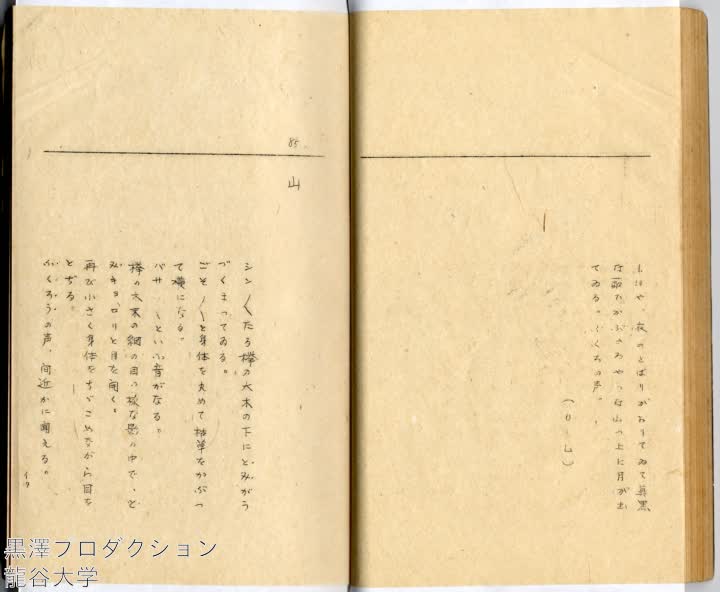 もはや、夜のとばりがおりてゐて真黒
な面をかぶつたやうな山の上に月が出
てゐる。ふくろの声。
(O・L)
85
山
シン〱たる欅の大木の下にどみがう
づくまつてゐる。
ごそ〱と身体を丸めて枯草をかぶつ
て横になる。
バサ〱といふ音がなる。
欅の大木の網の目の様な影の中で、ど
みがキョロリと目を開く。
再び小さく身体をちゞこめながら目を
とぢる。
ふくろうの声、間近かに聞える。
黒澤プロダクション
龍谷大学